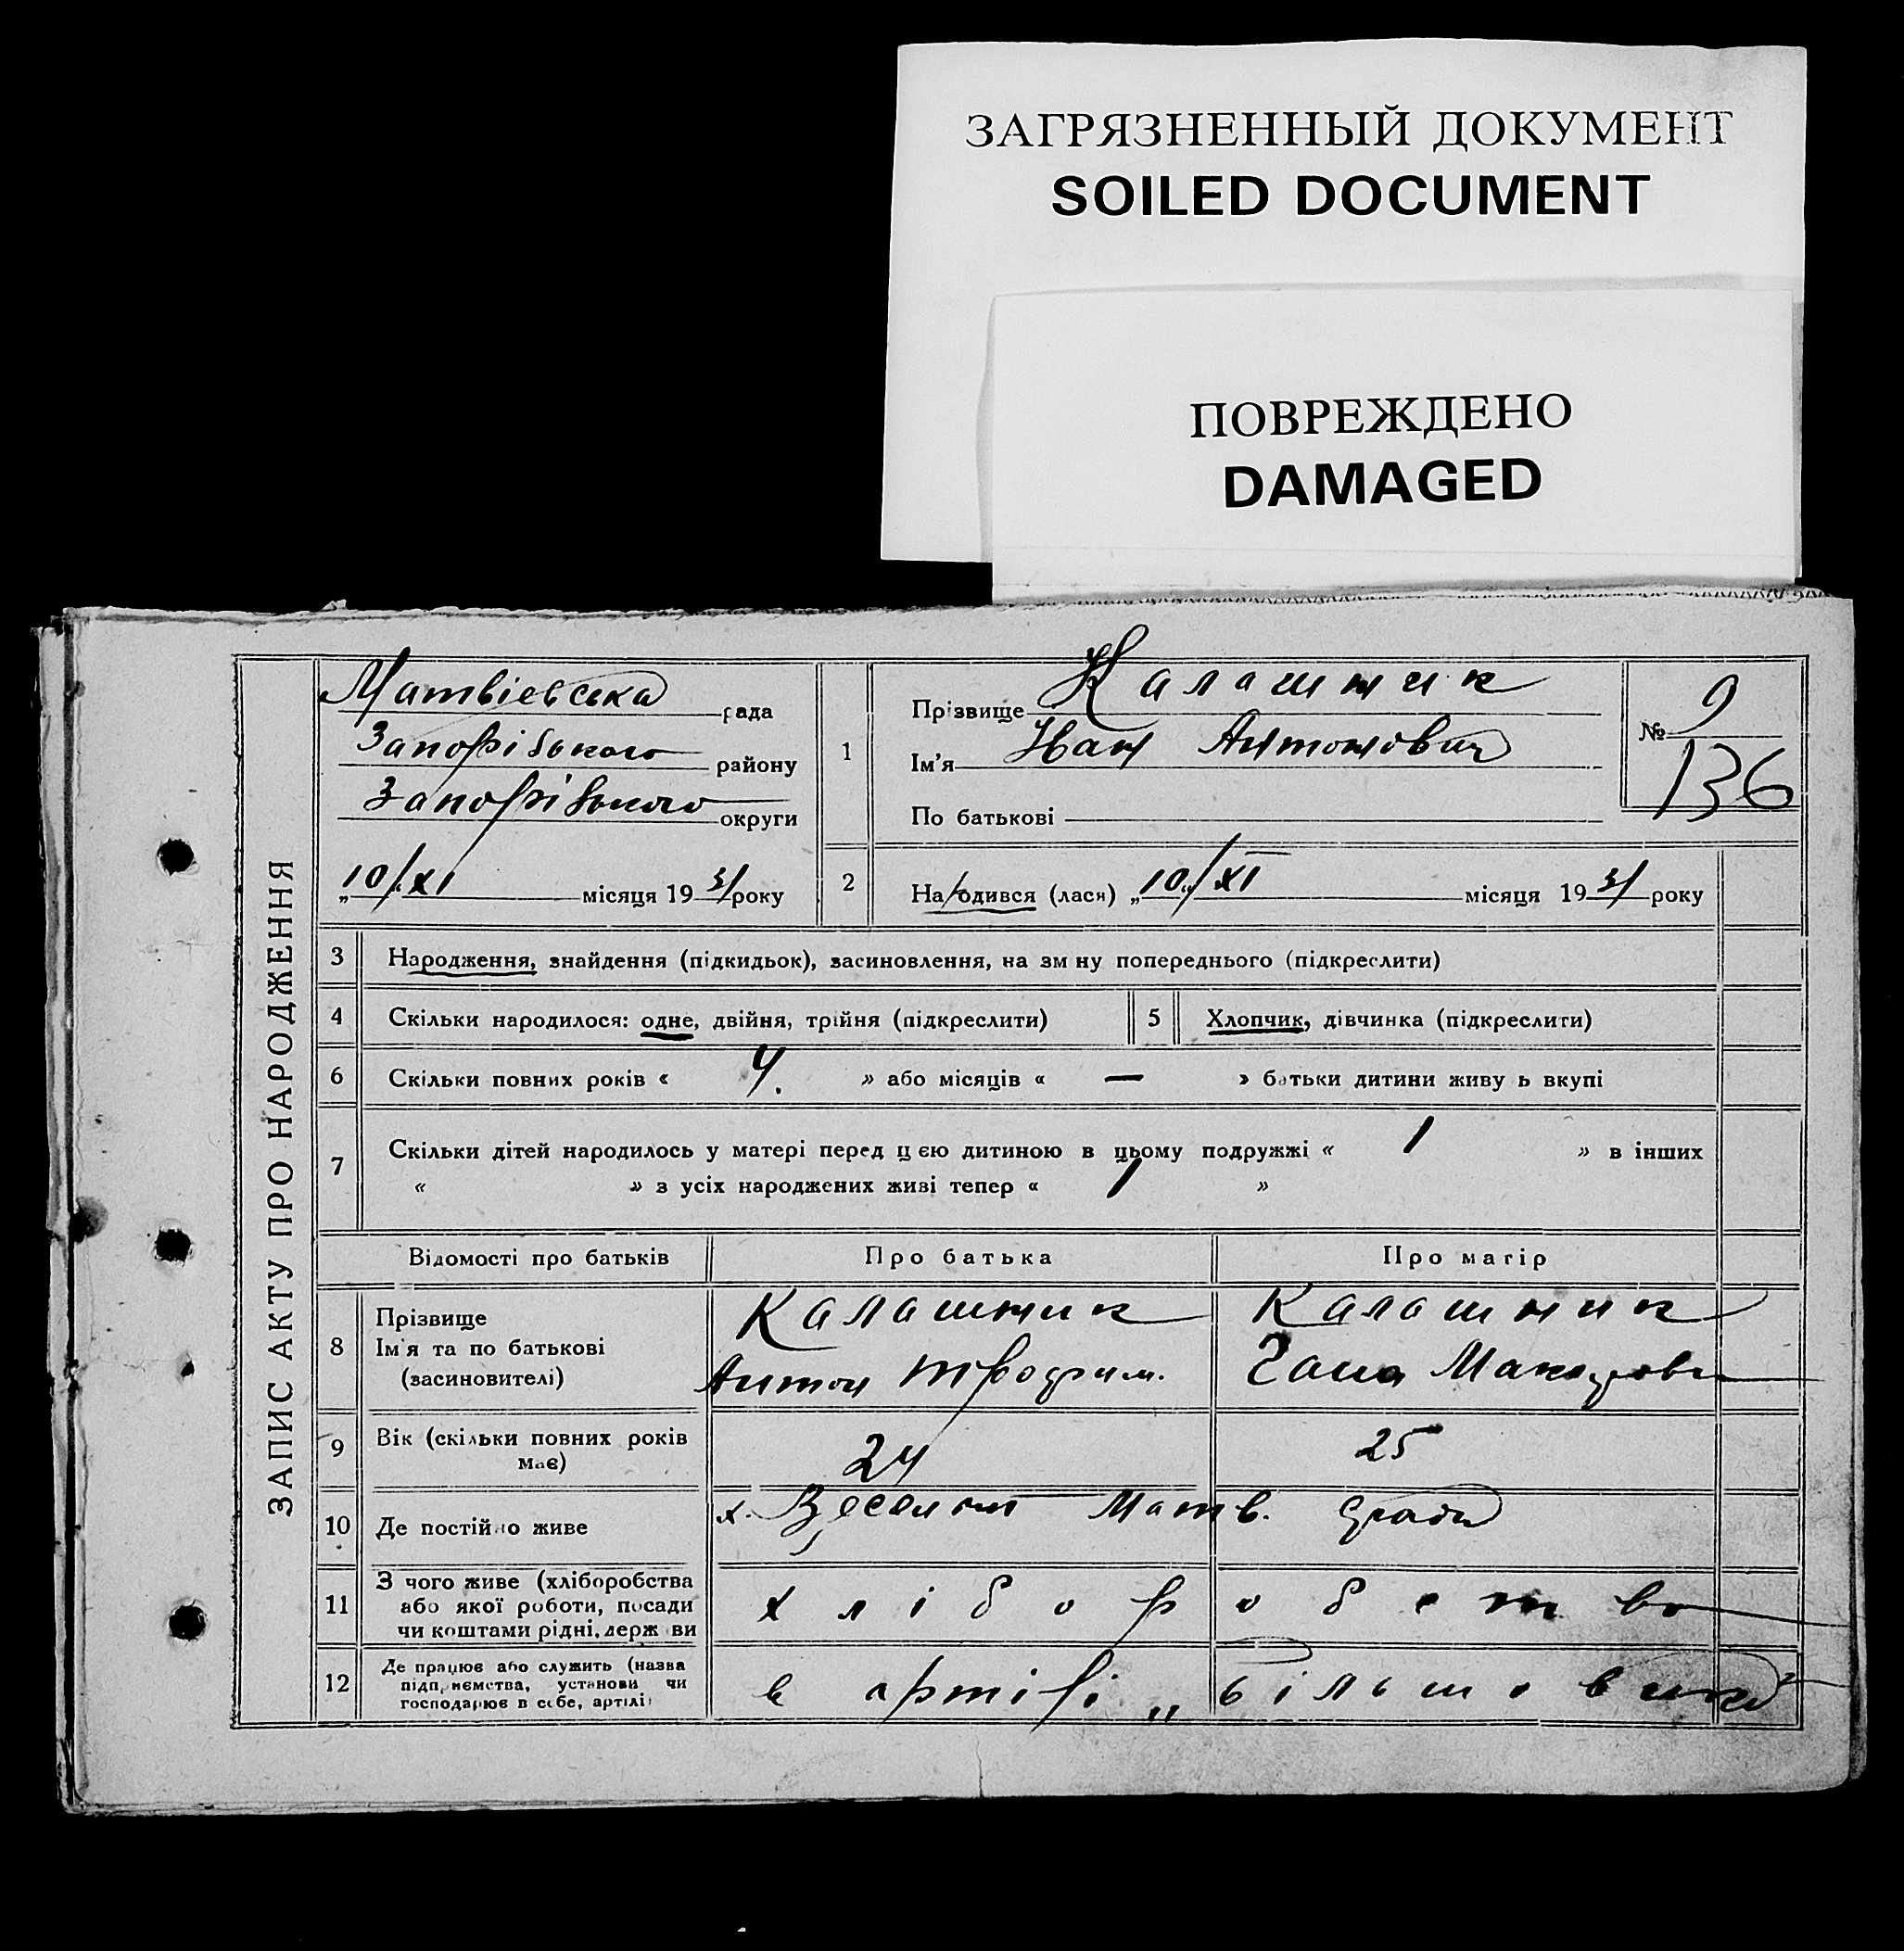 ЗАГРЯЗНЕННЫЙ ДОКУМЕНТ
SOILED DOCUMENT
ПОВРЕЖДЕНО
DAMAGED
ЗАПИС АКТУ ПРО НАРОДЖЕННЯ
Матвіевська рада
Запорізького району
Запорізького округи
„10/XI місяця 1931 року
1
Прізвище Калашник
Ім'я Иван Антонович
По батькові
№ 9
136
2
Народився (лася) „10„/XI місяця 1931 року
3 Народження, знайдення (підкидьок), засиновлення, на зм ну попереднього (підкреслити)
4 Скільки народилося: одне, двійня, трійня (підкреслити)
5 Хлопчик, дівчинка (підкреслити)
6 Скільки повних років « 4. » або місяців « — » батьки дитини живу ь вкупі
7 Скільки дітей народилось у матері перед цією дитиною в цьому подружжі « 1 » в інших
« » з усіх народжених живі тепер « 1 »
Відомості про батьків Про батька Про матір
8 Прізвище
Ім'я та по батькові
(засиновителі)
Калашник
Антон Трофим.
Калашник
Гана
9 Вік (скільки повних років
має)
24
25
10 Де постійно живе
х. Матв. ради
11 З чого живе (хліборобства
або якої роботи, посади
чи коштами рідні, держ ви
хліборобство
12 Де працює або служить (назва
підприємства, установи чи
господарює в себе, артілі)
в артілі „більшовик"